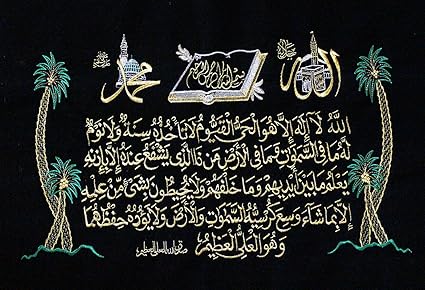 الله
بسم الله الرحمن الرحيم
محمد
اللَّهُ لَا إِلَهَ إِلَّا هُوَ الْحَيُّ الْقَيُّومُ لَا تَأْخُذُهُ سِنَةٌ وَلَا نَوْمٌ
لَهُ مَا فِي السَّمَوَاتِ وَمَا فِي الْأَرْضِ مَنْ ذَا الَّذِي يَشْفَعُ عِنْدَهُ إِلَّا بِإِذْنِهِ
يَعْلَمُ مَا بَيْنَ أَيْدِيهِمْ وَمَا خَلْفَهُمْ وَلَا يُحِيطُونَ بِشَيْءٍ مِنْ عِلْمِهِ
إِلَّا بِمَا شَاءَ وَسِعَ كُرْسِيُّهُ السَّمَوَاتِ وَالْأَرْضَ وَلَا يَئُودُهُ حِفْظُهُمَا
وَهُوَ الْعَلِيُّ الْعَظِيمُ صدق الله العلي العظيم